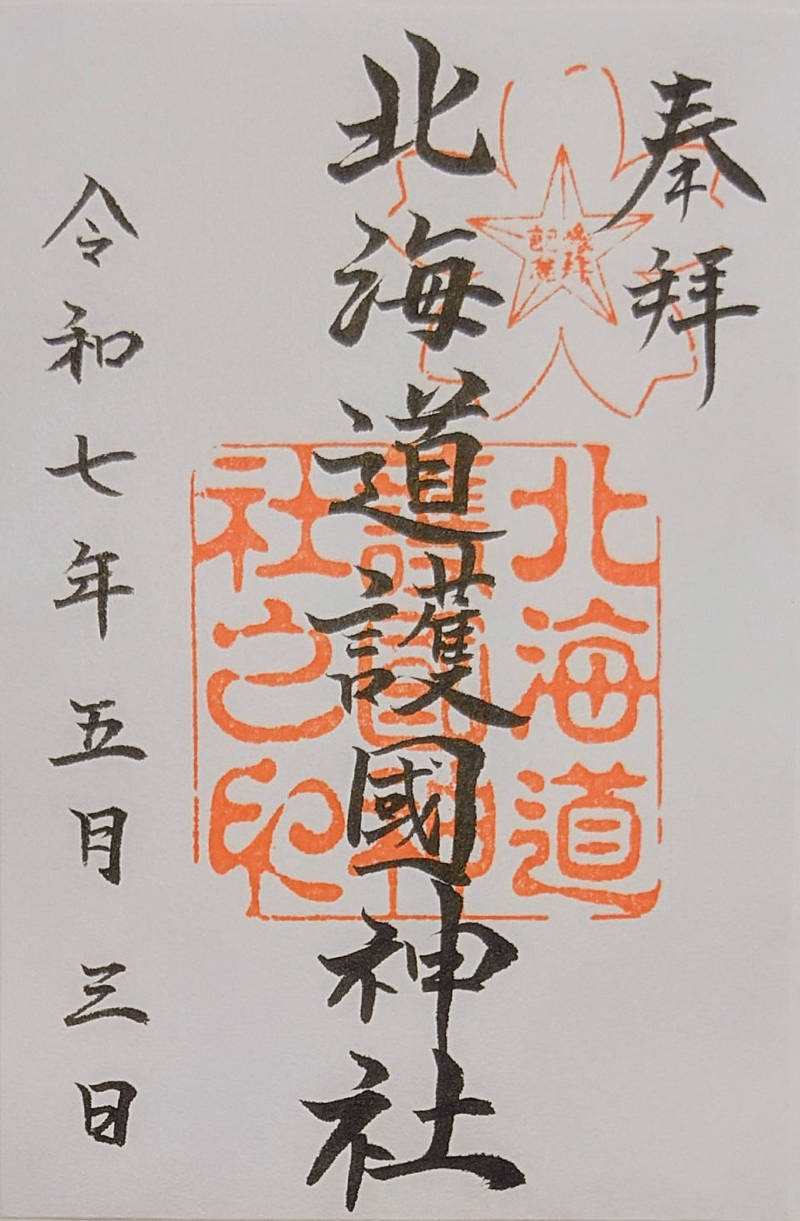 奉拝
北海道護國神社
令和七年五月三日
参拝
記念
北海道
護國神
社之印